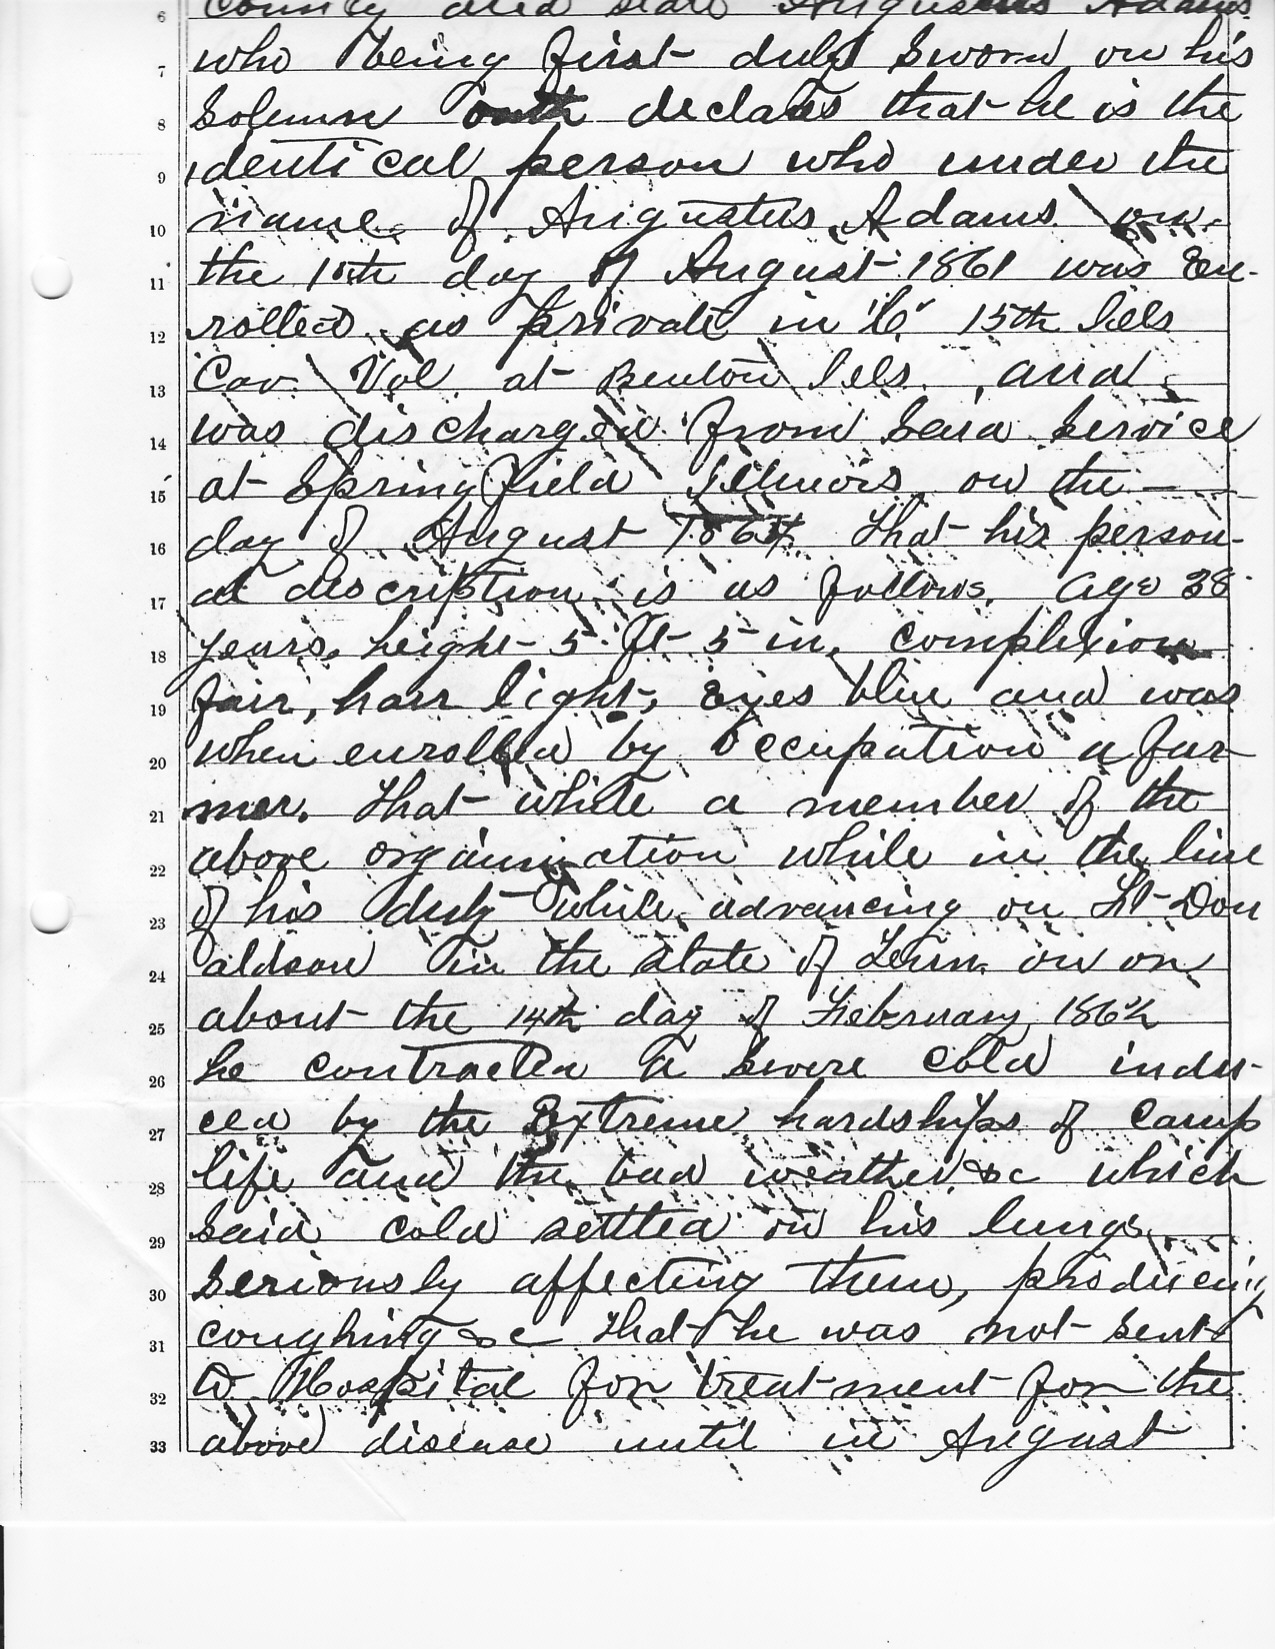 6 County and State Augustus Adams
7 who being first duly sworn on his
8 Solemn oath declares that he is the
9 identical person who under the
10 name of Augustus Adams on
11 the 10th day of August 1861 was En-
12 rolled as private in "C" 15th Ills
13 Cav. Vol at Benton Ills. and
14 was discharged from said service
15 at Springfield Illinois on the —
16 day of August 1864 That his person-
17 al description is as follows. Age 38
18 years, height 5 ft 5 in, complexion
19 fair, hair light, Eyes blue and was
20 when enrolled by occupation a far-
21 mer. That while a member of the
22 above organization while in the line
23 of his duty while advancing on Ft Don
24 aldson in the state of Tenn. on or
25 about the 14th day of February 1862
26 he contracted a severe cold indu-
27 ced by the Extreme hardships of camp
28 life and the bad weather &c which
29 said cold settled on his lungs
30 seriously affecting them, producing
31 coughing &c That he was not sent
32 to Hospital for treatment for the
33 above disease until in August